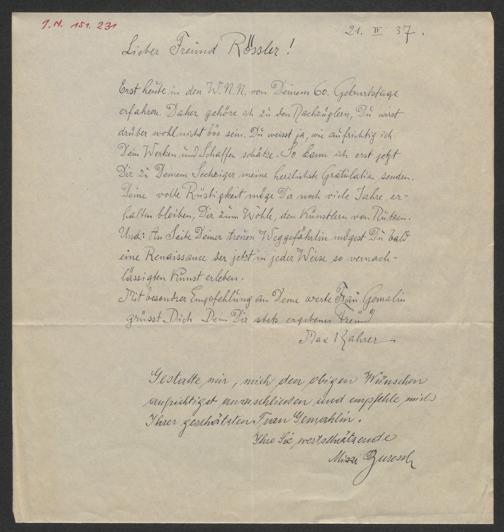 J.N. 151.231
21. IV 37.
Lieber Freund Rössler!
Erst heute in den W.N.N. von Deinem 60. Geburtstage
erfahren. Daher gehöre ich zu den Nachzüglern, Du wirst
drüber wohl nicht bös sein. Du weisst ja, wie aufrichtig ich
Dein Werken und Schaffen schätze. So kann ich erst jetzt
Dir zu Deinem Sechziger meine herzlichste Gratulation senden.
Deine volle Rüstigkeit möge Da noch viele Jahre er-
halten bleiben, Dir zum Wohle, den Künstlern von Nutzen.
Und: An Seite Deiner treuen Weggefährtin mögest Du bald
eine Renaissance der jetzt in jeder Weise so vernach-
lässigten Kunst erleben.
Mit besondrer Empfehlung an Deine werte Frau Gemalin
grüsst Dich Dein Dir stets ergebener Freund
Max Kahrer
Gestatte mir, mich den obigen Wünschen
aufrichtigst anzuschließen und empfehle mich
Ihrer geschätzten Frau Gemahlin.
Ihre Sie wertschätzende
Mizzi